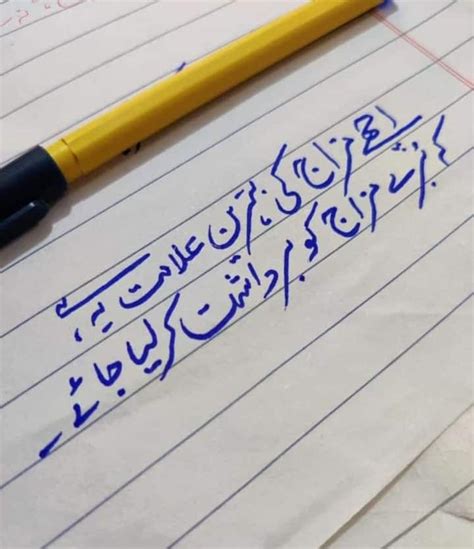 اچھے مزاج کی بہترین علامت یہ ہے
کہ برے مزاج کو برداشت کر لیا جائے۔